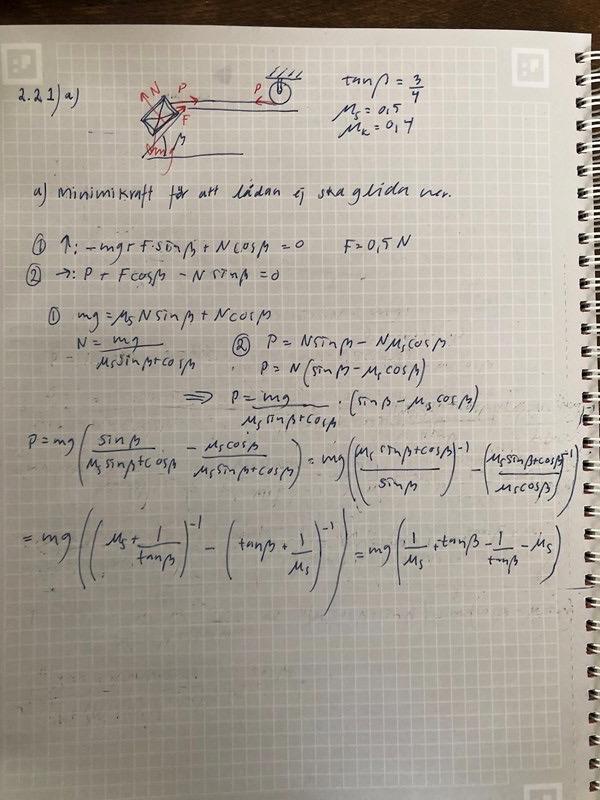 2.21) a)
N P P
F
mg β
tanβ = 3/4
μs = 0,5
μk = 0,4
a) Minimikraft för att lådan ej ska glida ner.
① ↑: -mg + F·sinβ + Ncosβ = 0 F = 0,5 N
② →: P + Fcosβ - N sinβ = 0
① mg = μs N sinβ + Ncosβ
N = mg/(μs sinβ + cosβ) ② P = Nsinβ - Nμs cosβ
P = N(sinβ - μs cosβ)
⇒ P = mg/(μs sinβ + cosβ) · (sinβ - μs cosβ)
P = mg(sinβ/(μs sinβ + cosβ) - μs cosβ/(μs sinβ + cosβ)) = mg(((μs sinβ + cosβ)/sinβ)^-1 - ((μs sinβ + cosβ)/(μs cosβ))^-1)
= mg((μs + 1/tanβ)^-1 - (tanβ + 1/μs)^-1) = mg(1/μs + tanβ - 1/tanβ - μs)